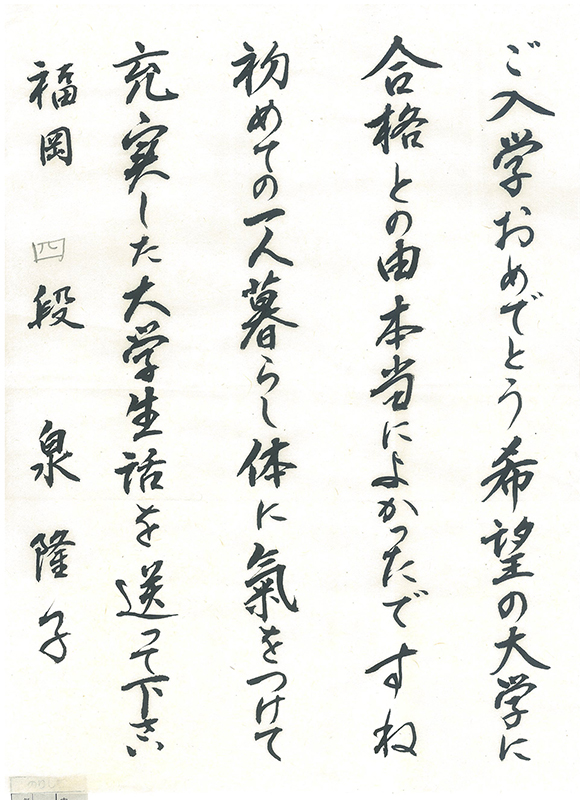 ご入学おめでとう希望の大学に
合格との由本当によかったですね
初めての一人暮らし体に氣をつけて
充実した大学生活を送って下さい
福岡 四段 泉隆子